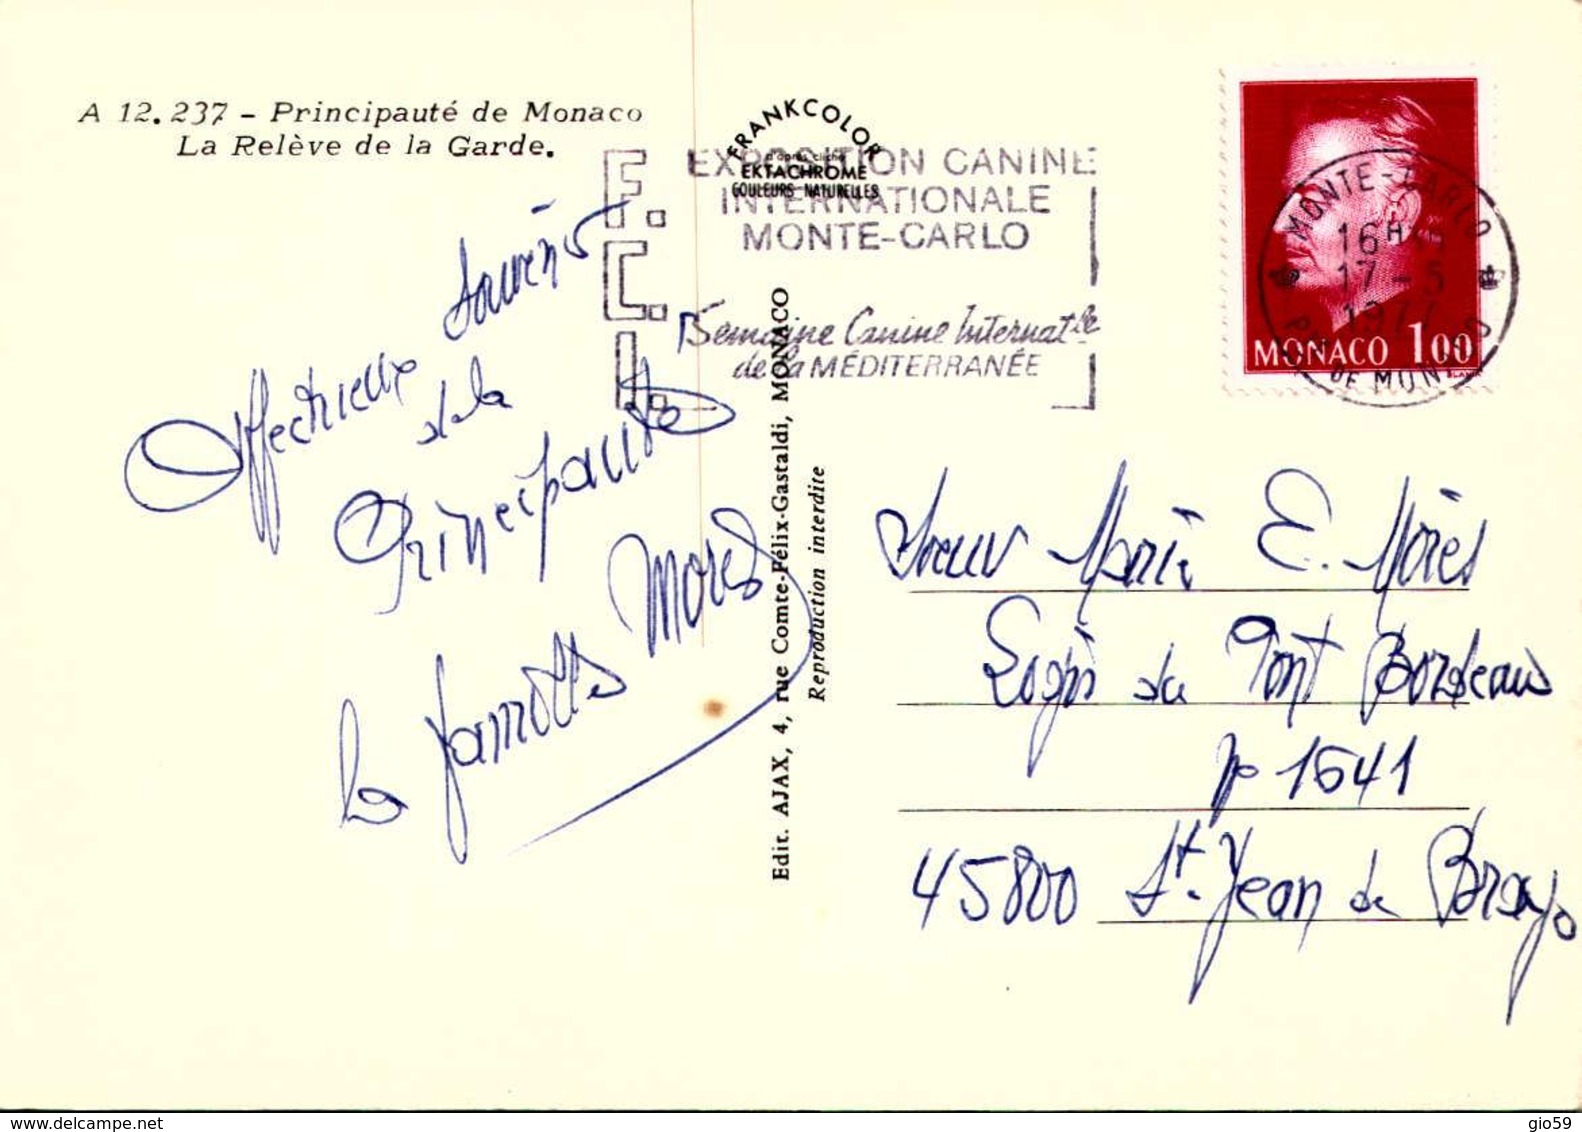 A 12.237 - Principauté de Monaco
La Relève de la Garde.
FRANKCOLOR
d'après cliché
EKTACHROME
COULEURS NATURELLES
F.
C.
I.
EXPOSITION CANINE
INTERNATIONALE
MONTE-CARLO
Semaine Canine Internatle
de la MÉDITERRANÉE
MONACO 1.00
MONTE-CARLO
16H
17-5
1977
Affectueux souvenir
de la
Principauté
la famille Morès
Edit. AJAX, 4, rue Comte-Félix-Gastaldi, MONACO
Reproduction interdite
Soeur Marie E. Morès
Logis du Pont Bordeau
n° 1641
45800 St. Jean de Braye
delcampe.net
gio59